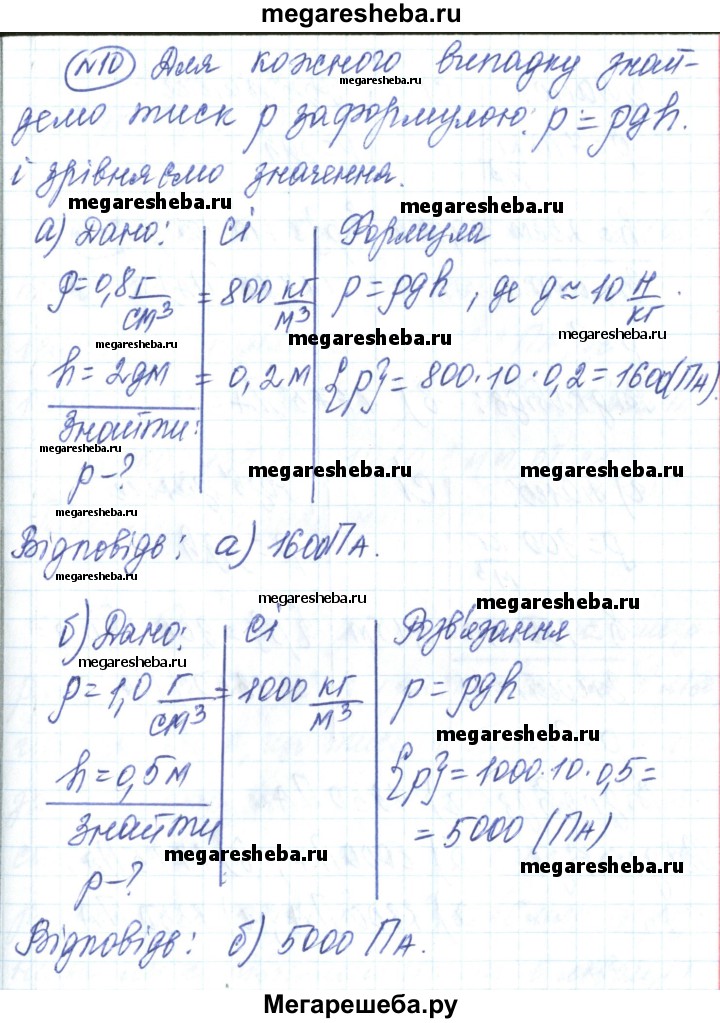 megaresheba.ru
№10 Для кожного випадку знай-
megaresheba.ru
демо тиск p за формулою: p = ρgh.
і зрівняємо значення.
megaresheba.ru megaresheba.ru
а) Дано: СІ Формула
ρ = 0,8 г/см³ = 800 кг/м³ p = ρgh, де g ≈ 10 Н/кг.
megaresheba.ru megaresheba.ru
h = 2дм = 0,2 м {p} = 800·10·0,2 = 1600(Па).
Знайти:
megaresheba.ru megaresheba.ru megaresheba.ru
p - ?
megaresheba.ru
Відповідь: а) 1600Па.
megaresheba.ru
megaresheba.ru megaresheba.ru
б) Дано: СІ Розв'язання
megaresheba.ru
ρ = 1,0 г/см³ = 1000 кг/м³ p = ρgh
megaresheba.ru
h = 0,5 м {p} = 1000·10·0,5 =
Знайти = 5000 (Па)
megaresheba.ru megaresheba.ru
p - ?
Відповідь: б) 5000 Па.
Мегарешеба.ру